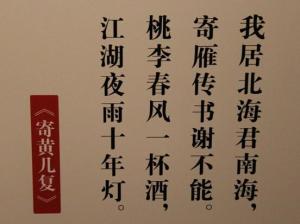 我居北海君南海，
寄雁传书谢不能。
桃李春风一杯酒，
江湖夜雨十年灯。
《寄黄几复》